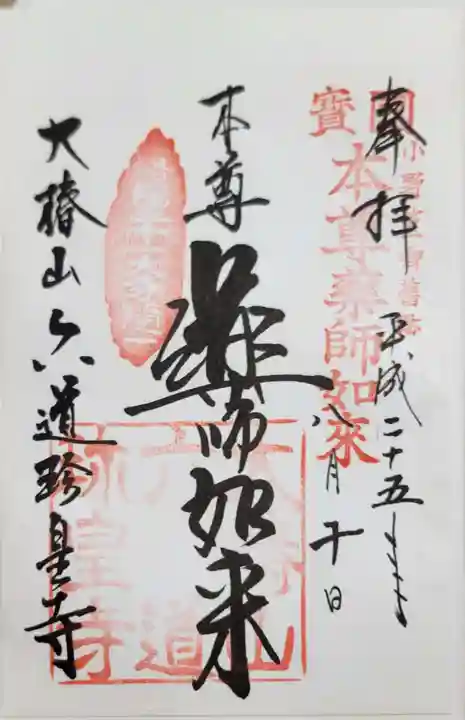 奉拝
平成二十五年
八月十日
國寶
本尊薬師如來
本尊
薬師如来
大椿山六道珍皇寺